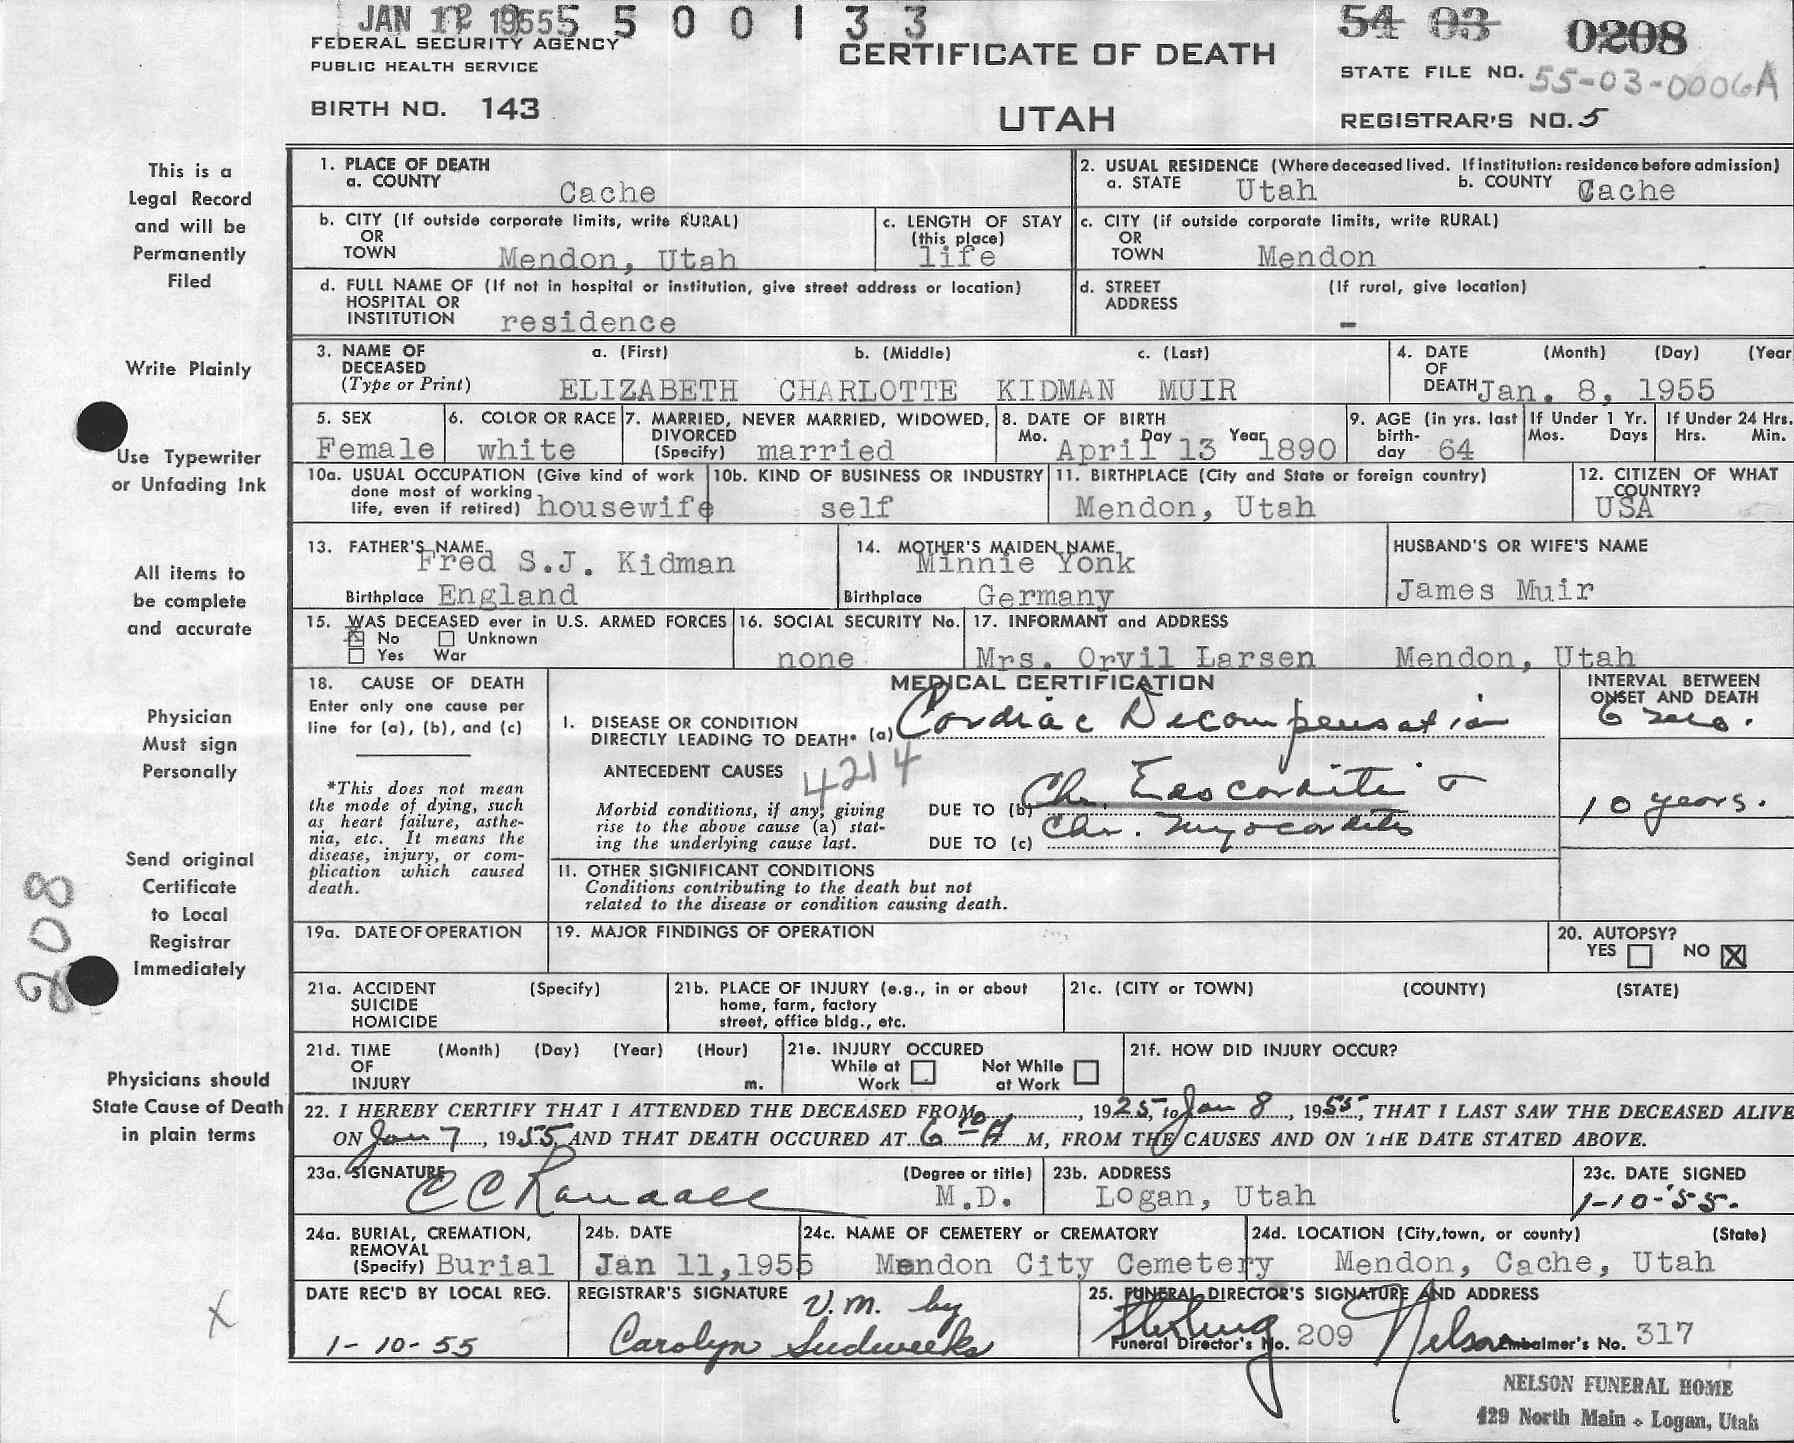 JAN 12 1955 5 5 0 0 1 3 3
54 03 0208
FEDERAL SECURITY AGENCY
PUBLIC HEALTH SERVICE
CERTIFICATE OF DEATH
STATE FILE NO. 55-03-0006A
BIRTH NO. 143
UTAH
REGISTRAR'S NO. 5
This is a
Legal Record
and will be
Permanently
Filed
Write Plainly
Use Typewriter
or Unfading Ink
All items to
be complete
and accurate
Physician
Must sign
Personally
Send original
Certificate
to Local
Registrar
Immediately
208
Physicians should
State Cause of Death
in plain terms
X
1. PLACE OF DEATH
a. COUNTY Cache
2. USUAL RESIDENCE (Where deceased lived. If institution: residence before admission)
a. STATE Utah b. COUNTY Cache
b. CITY (If outside corporate limits, write RURAL)
OR
TOWN Mendon, Utah
c. LENGTH OF STAY
(this place)
life
c. CITY (if outside corporate limits, write RURAL)
OR
TOWN Mendon
d. FULL NAME OF (If not in hospital or institution, give street address or location)
HOSPITAL OR
INSTITUTION residence
d. STREET (If rural, give location)
ADDRESS
-
3. NAME OF a. (First) b. (Middle) c. (Last)
DECEASED
(Type or Print) ELIZABETH CHARLOTTE KIDMAN MUIR
4. DATE (Month) (Day) (Year
OF
DEATH Jan. 8, 1955
5. SEX
Female
6. COLOR OR RACE
white
7. MARRIED, NEVER MARRIED, WIDOWED,
DIVORCED
(Specify) married
8. DATE OF BIRTH
Mo. Day Year
April 13 1890
9. AGE (in yrs. last
birth-
day 64
If Under 1 Yr.
Mos. Days
If Under 24 Hrs.
Hrs. Min.
10a. USUAL OCCUPATION (Give kind of work
done most of working
life, even if retired) housewife
10b. KIND OF BUSINESS OR INDUSTRY
self
11. BIRTHPLACE (City and State or foreign country)
Mendon, Utah
12. CITIZEN OF WHAT
COUNTRY?
USA
13. FATHER'S NAME
Fred S.J. Kidman
Birthplace England
14. MOTHER'S MAIDEN NAME
Minnie Yonk
Birthplace Germany
HUSBAND'S OR WIFE'S NAME
James Muir
15. WAS DECEASED ever in U.S. ARMED FORCES
No Unknown
Yes War
16. SOCIAL SECURITY No.
none
17. INFORMANT and ADDRESS
Mrs. Orvil Larsen Mendon, Utah
18. CAUSE OF DEATH
Enter only one cause per
line for (a), (b), and (c)
*This does not mean
the mode of dying, such
as heart failure, asthe-
nia, etc. It means the
disease, injury, or com-
plication which caused
death.
MEDICAL CERTIFICATION
INTERVAL BETWEEN
ONSET AND DEATH
I. DISEASE OR CONDITION
DIRECTLY LEADING TO DEATH* (a) Cardiac Decompensation 6 mo.
ANTECEDENT CAUSES 4214
Morbid conditions, if any, giving
rise to the above cause (a) stat-
ing the underlying cause last.
DUE TO (b) Chr. Endocarditis & 10 years.
DUE TO (c) Chr. Myocarditis
11. OTHER SIGNIFICANT CONDITIONS
Conditions contributing to the death but not
related to the disease or condition causing death.
19a. DATE OF OPERATION
19. MAJOR FINDINGS OF OPERATION
20. AUTOPSY?
YES NO X
21a. ACCIDENT (Specify)
SUICIDE
HOMICIDE
21b. PLACE OF INJURY (e.g., in or about
home, farm, factory
street, office bldg., etc.
21c. (CITY or TOWN) (COUNTY) (STATE)
21d. TIME (Month) (Day) (Year) (Hour)
OF
INJURY m.
21e. INJURY OCCURED
While at Work Not While at Work
21f. HOW DID INJURY OCCUR?
22. I HEREBY CERTIFY THAT I ATTENDED THE DECEASED FROM , 1925, to Jan 8, 1955, THAT I LAST SAW THE DECEASED ALIVE
ON Jan 7, 1955, AND THAT DEATH OCCURED AT 6 10 A M, FROM THE CAUSES AND ON THE DATE STATED ABOVE.
23a. SIGNATURE (Degree or title)
C C Randall M.D.
23b. ADDRESS
Logan, Utah
23c. DATE SIGNED
1-10-'55.
24a. BURIAL, CREMATION,
REMOVAL
(Specify) Burial
24b. DATE
Jan 11,1955
24c. NAME OF CEMETERY or CREMATORY
Mendon City Cemetery
24d. LOCATION (City,town, or county) (State)
Mendon, Cache, Utah
DATE REC'D BY LOCAL REG.
1-10-55
REGISTRAR'S SIGNATURE V.M. by
Carolyn Sudweeks
25. FUNERAL DIRECTOR'S SIGNATURE AND ADDRESS
Sterling Nelson
Funeral Director's No. 209 Embalmer's No. 317
NELSON FUNERAL HOME
429 North Main Logan, Utah